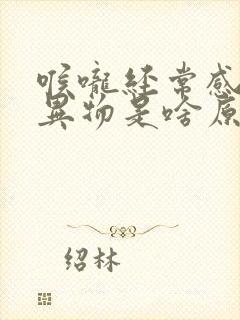 喉咙经常感
异物是啥原
绍林